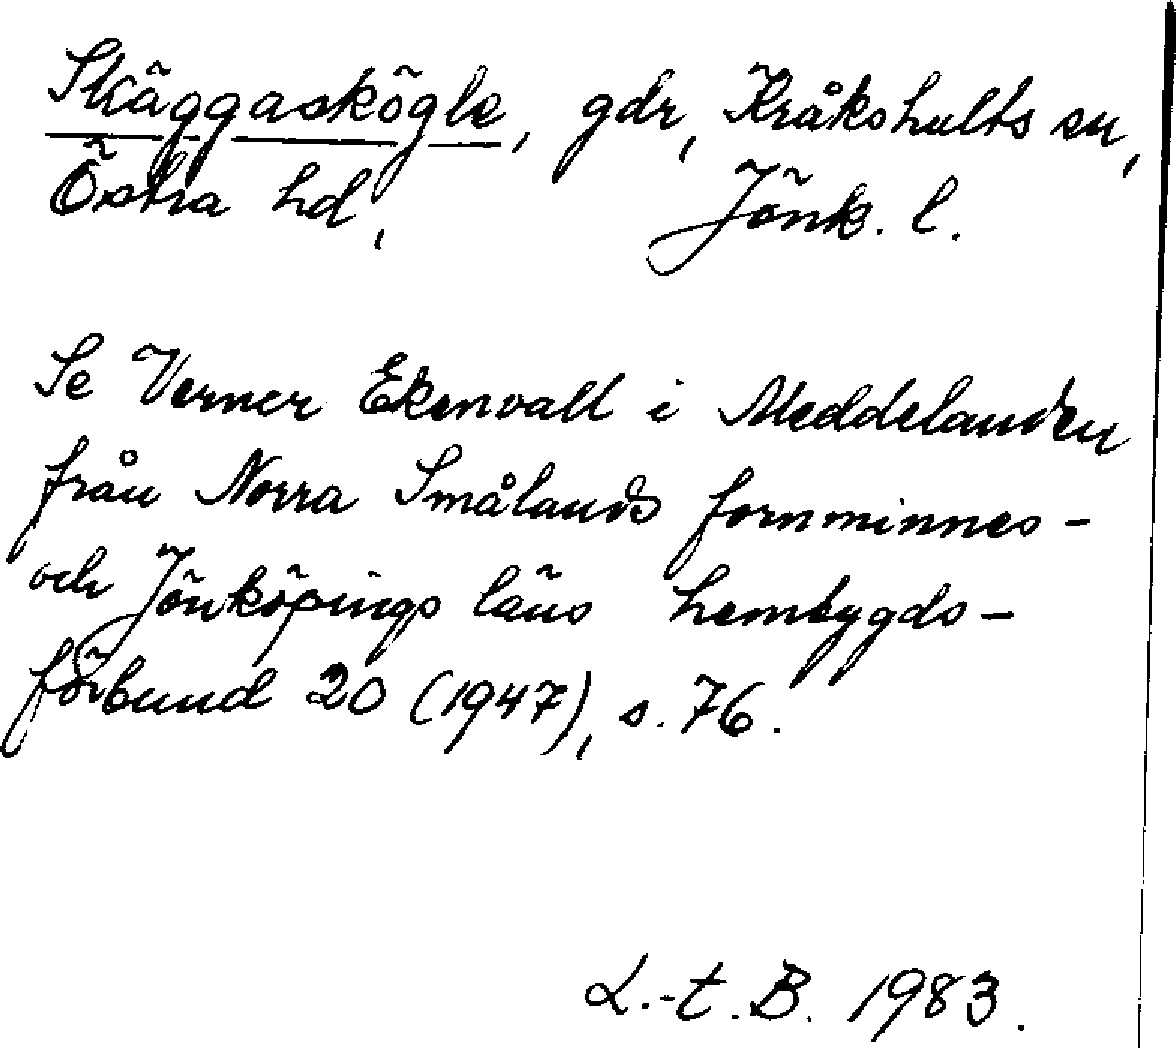 Skäggaskögle, gdr, Kråkshults sn,
Östra hd, Jönk. l.
Se Verner Ekenvall i Meddelanden
från Norra Smålands fornminnes-
och Jönköpings läns hembygds-
förbund 20 (1947), s. 76.
L.-t. B. 1983.